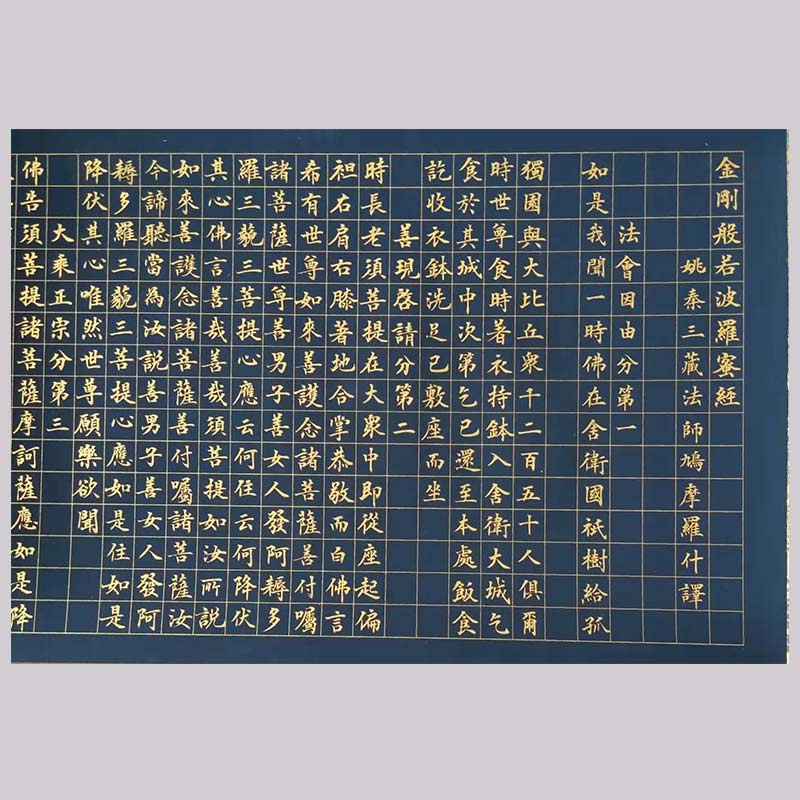 金剛般若波羅蜜經
姚秦三藏法師鳩摩羅什譯
法會因由分第一
如是我聞一時佛在舍衛國祇樹給孤
獨園與大比丘衆千二百五十人俱爾
時世尊食時著衣持鉢入舍衛大城乞
食於其城中次第乞已還至本處飯食
訖收衣鉢洗足已敷座而坐
善現啓請分第二
時長老須菩提在大衆中即從座起偏
袒右肩右膝著地合掌恭敬而白佛言
希有世尊如來善護念諸菩薩善付囑
諸菩薩世尊善男子善女人發阿耨多
羅三藐三菩提心應云何住云何降伏
其心佛言善哉善哉須菩提如汝所說
如來善護念諸菩薩善付囑諸菩薩汝
今諦聽當為汝說善男子善女人發阿
耨多羅三藐三菩提心應如是住如是
降伏其心唯然世尊願樂欲聞
大乘正宗分第三
佛告須菩提諸菩薩摩訶薩應如是降